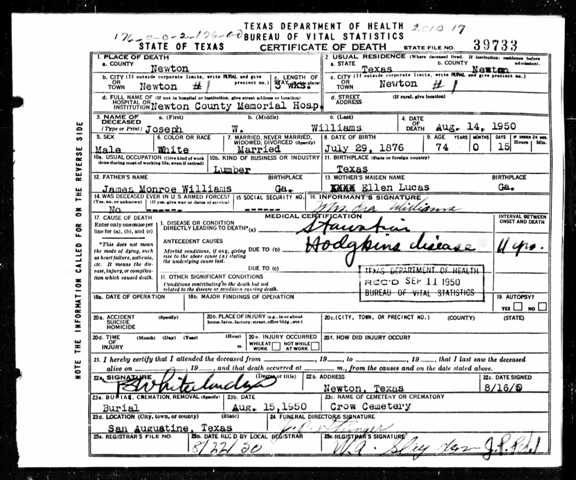 TEXAS DEPARTMENT OF HEALTH
BUREAU OF VITAL STATISTICS
STATE OF TEXAS CERTIFICATE OF DEATH STATE FILE NO. 39733
1. PLACE OF DEATH 2. USUAL RESIDENCE (Where deceased lived. If institution: residence before admission)
a. COUNTY Newton a. STATE Texas b. COUNTY Newton
b. CITY (If outside corporate limits, write RURAL and give precinct no.) Newton #1 c. LENGTH OF STAY 3 wks. c. CITY (If outside corporate limits, write RURAL and give precinct no.) Newton #1
d. FULL NAME OF (If not in hospital or institution, give street address or location) HOSPITAL OR INSTITUTION Newton County Memorial Hosp. d. STREET ADDRESS (If rural, give location)
3. NAME OF DECEASED (Type or Print) a. (First) Joseph b. (Middle) W. c. (Last) Williams 4. DATE OF DEATH Aug. 14, 1950
5. SEX Male 6. COLOR OR RACE White 7. MARRIED, NEVER MARRIED, WIDOWED, DIVORCED (Specify) Married 8. DATE OF BIRTH July 29, 1876 9. AGE YEARS 74 MONTHS 0 DAYS 15
10a. USUAL OCCUPATION (Give kind of work done during most of working life, even if retired) 10b. KIND OF BUSINESS OR INDUSTRY Lumber 11. BIRTHPLACE (State or foreign country) Texas
12. FATHER'S NAME James Monroe Williams BIRTHPLACE Ga. 13. MOTHER'S MAIDEN NAME Ellen Lucas BIRTHPLACE Ga.
14. WAS DECEASED EVER IN U.S. ARMED FORCES? No 15. SOCIAL SECURITY NO. 16. INFORMANT'S SIGNATURE Williams
17. CAUSE OF DEATH MEDICAL CERTIFICATION INTERVAL BETWEEN ONSET AND DEATH
Enter only one cause per line for (a), (b), and (c) I. DISEASE OR CONDITION DIRECTLY LEADING TO DEATH* (a)
ANTECEDENT CAUSES DUE TO (b) Hodgkins disease 11 yrs.
*This does not mean the mode of dying, such as heart failure, asthenia, etc. It means the disease, injury, or complication which caused death.
Morbid conditions, if any, giving rise to the above cause (a) stating the underlying cause last.
DUE TO (c)
II. OTHER SIGNIFICANT CONDITIONS
Conditions contributing to the death but not related to the disease or condition causing death.
TEXAS DEPARTMENT OF HEALTH
REC'D SEP 11 1950
BUREAU OF VITAL STATISTICS
18a. DATE OF OPERATION 18b. MAJOR FINDINGS OF OPERATION 19. AUTOPSY? YES NO
20a. ACCIDENT SUICIDE HOMICIDE (Specify) 20b. PLACE OF INJURY (e.g., in or about home, farm, factory, street, office bldg., etc.) 20c. (CITY, TOWN, OR PRECINCT NO.) (COUNTY) (STATE)
20d. TIME OF INJURY (Month) (Day) (Year) (Hour) 20e. INJURY OCCURRED WHILE AT WORK NOT WHILE AT WORK 20f. HOW DID INJURY OCCUR?
21. I hereby certify that I attended the deceased from , 19 , to , 19 , that I last saw the deceased alive on , 19 , and that death occurred at m., from the causes and on the date stated above.
22a. SIGNATURE (Degree or title) 22b. ADDRESS Newton, Texas 22c. DATE SIGNED 8/16/50
23a. BURIAL, CREMATION, REMOVAL (Specify) Burial 23b. DATE Aug. 15, 1950 23c. NAME OF CEMETERY OR CREMATORY Crow Cemetery
23d. LOCATION (City, town, or county) (State) San Augustine, Texas 24. FUNERAL DIRECTOR'S SIGNATURE
25a. REGISTRAR'S FILE NO. 25b. DATE REC'D BY LOCAL REGISTRAR 8/22/50 25c. REGISTRAR'S SIGNATURE
NOTE THE INFORMATION CALLED FOR ON THE REVERSE SIDE